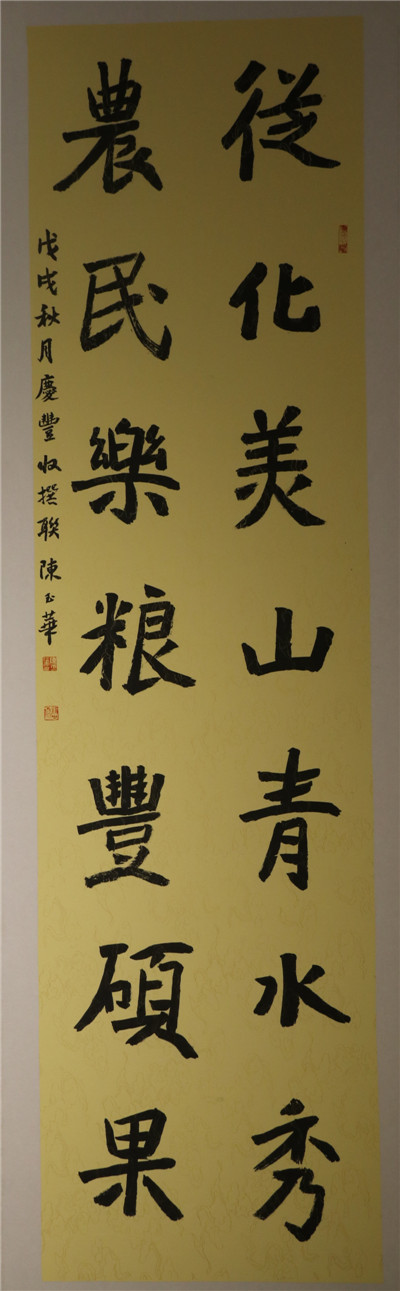 從化美山青水秀
農民樂粮豐碩果
戊戌秋月慶豐收撰聯 陳玉華